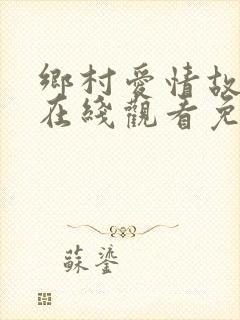 鄉村愛情故
在綫觀看免
蘇鎏